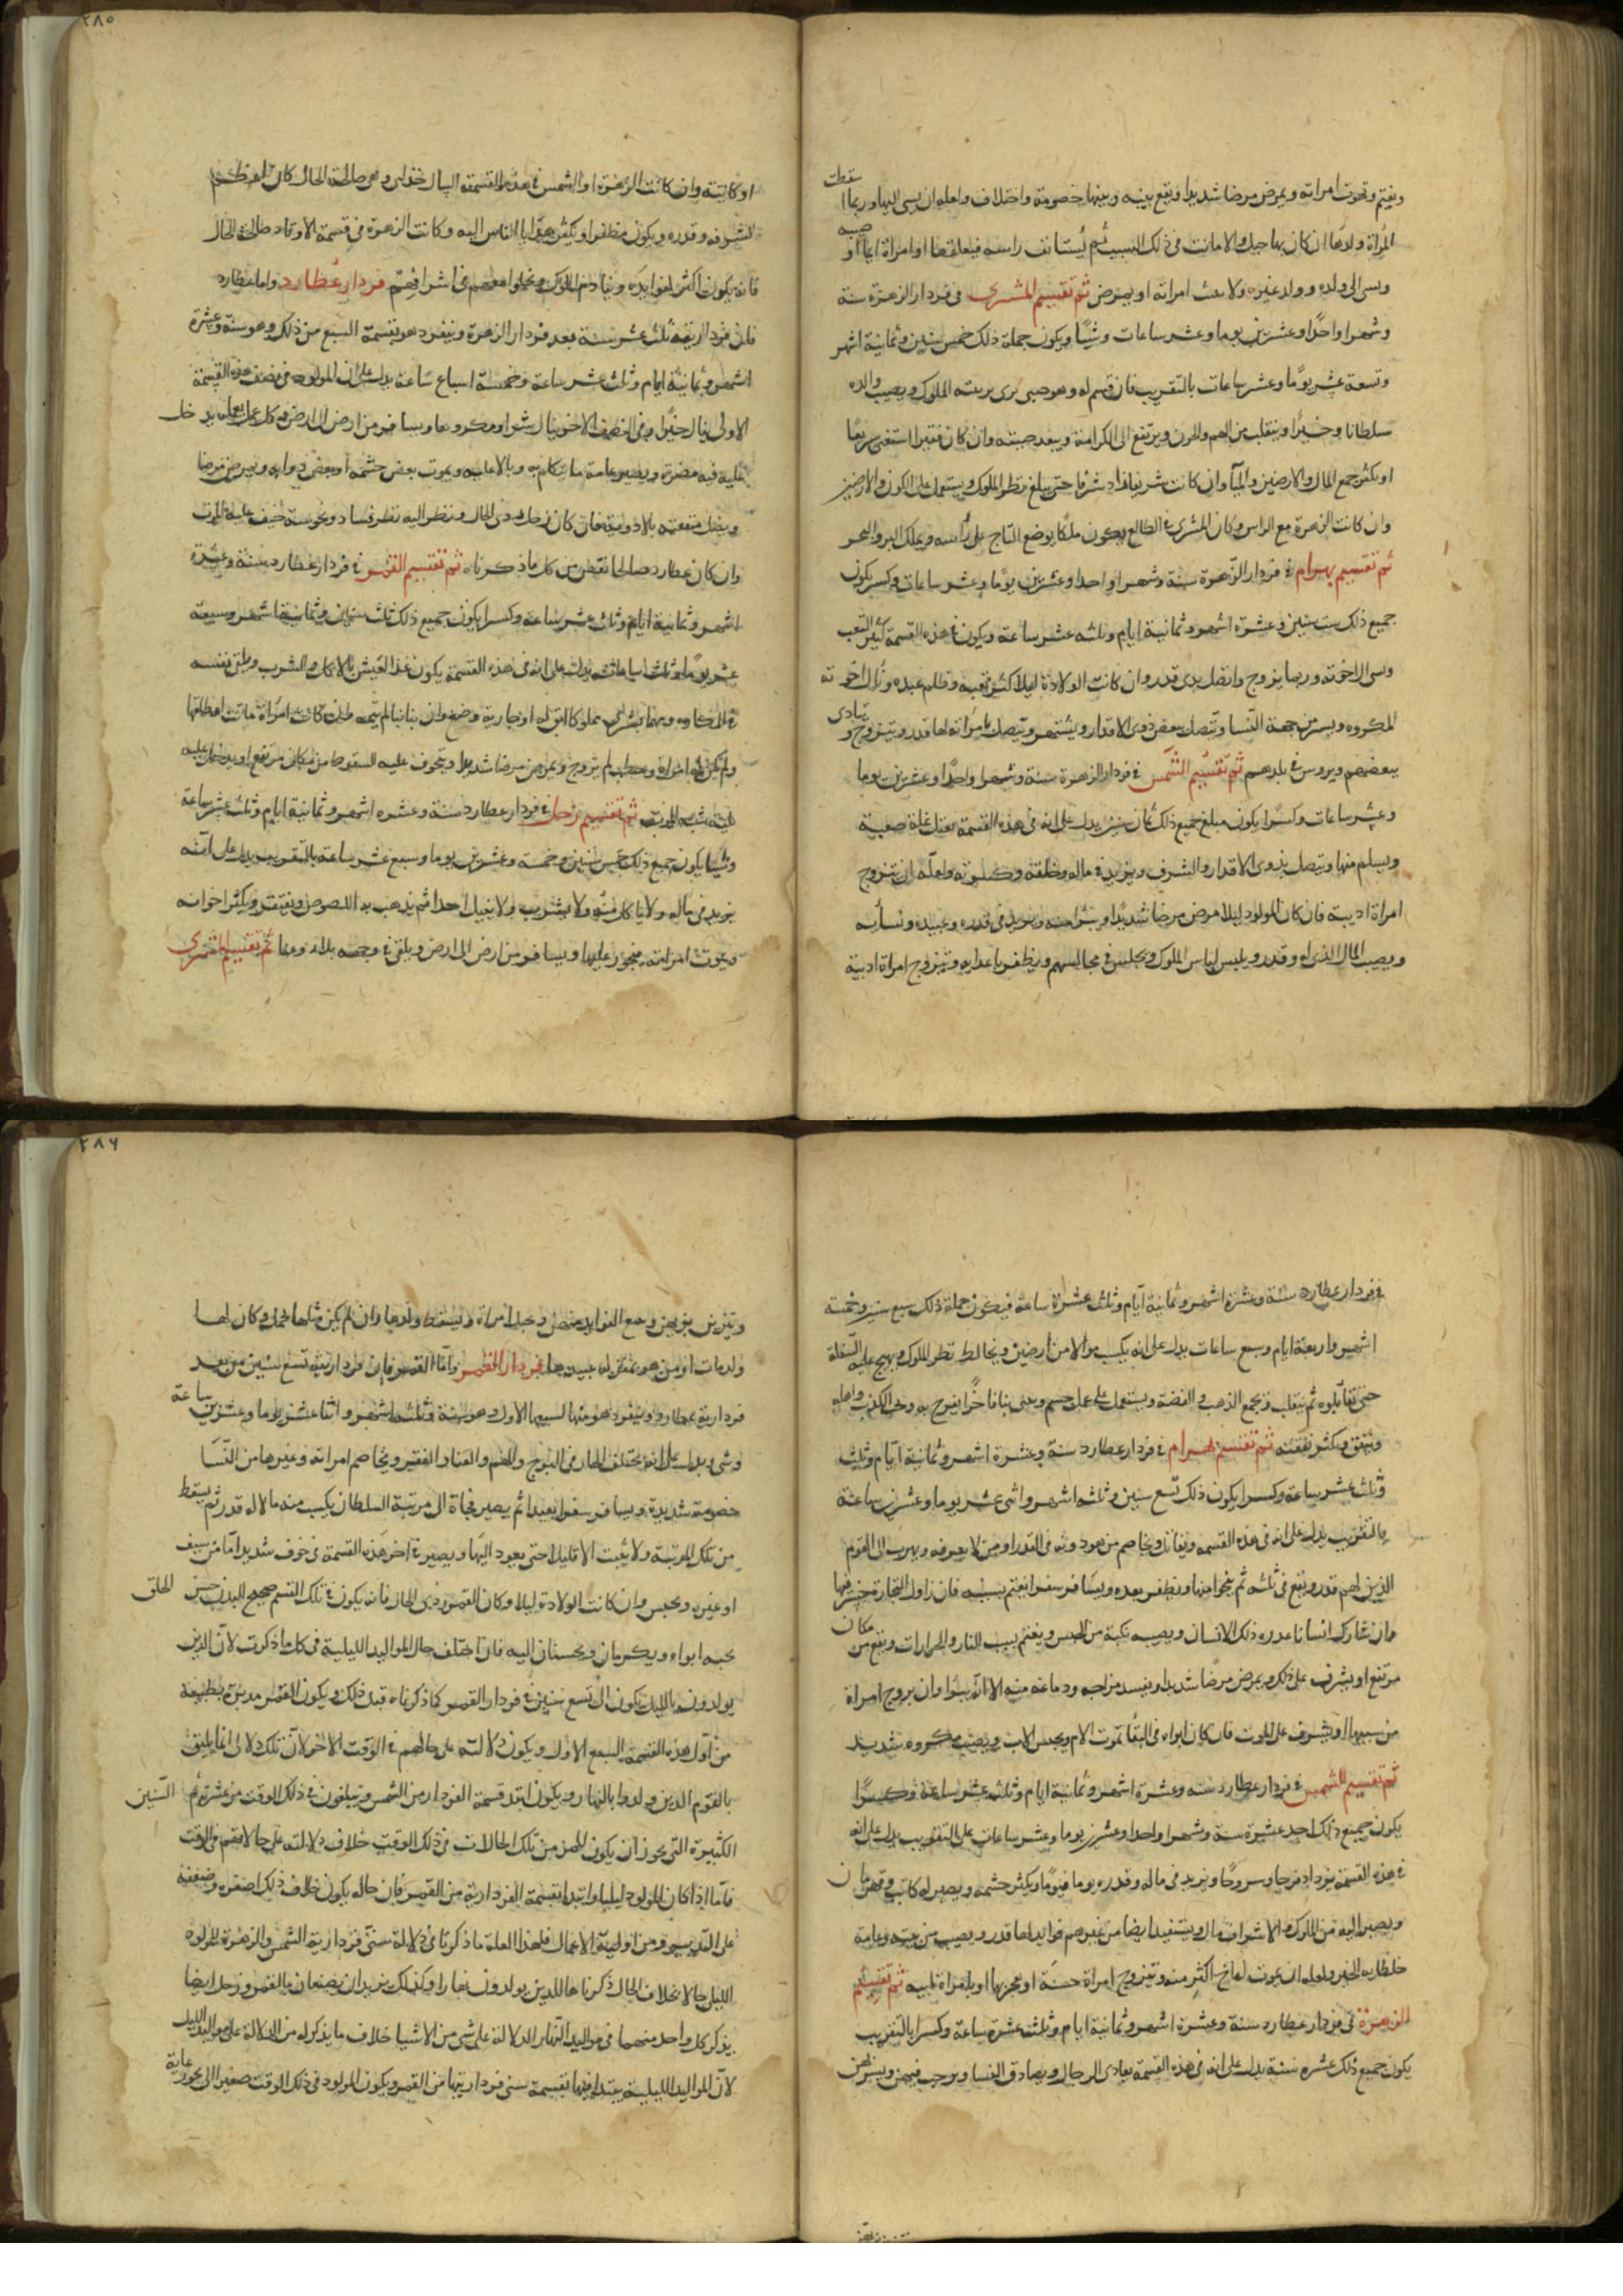 ويغتم وتموت امراته ويمرض مرضا شديدا ويقع بينه وبينها خصومة واختلاف ولعله ان يسى اليها وربما
سقطت
المراة ولدها ان كان بها حبل والا ماتت في ذلك السبب ثم يستانف راسه او امراة
ويسى الى ولده وولد غيره امراته او يمرض ثم تقسيم المشترى في فردار الزهرة سنة
وشهرا واحدا وعشرين يوما وعشر ساعات وشيئا ويكون جملة ذلك خمس سنين وثمانية اشهر
وتسعة عشر يوما وعشر ساعات بالتقريب فان قسم له وهو صبى يرى تربته الملوك ويصيب والده
سلطانا وخيرا وينقلب من الهم والحزن ويرتفع الى الكرامة ويبعد صيته وان كان فقيرا استغنى سريعا
او يكثر جمع المال والارضين والمياه وان كانت شريفا افاد شرفا حتى يبلغ نظر الملوك ويستعمل على الكور والارضين
وان كانت الزهرة مع الراس وكان المشترى في الطالع يكون ملكا يوضع التاج على راسه ويملك البر والبحر
ثم تقسيم بهرام في فردار الزهرة سنة وشهرا واحدا وعشرين يوما وعشر ساعات وكسر يكون
جميع ذلك ست سنين وعشرة اشهر وثمانية ايام وثلثه عشر ساعة ويكون في هذه القسمة كثير التعب
وسى الاخوته وربما يزوج واتصل بذى قدر وان كانت الولادة ليلا اكثر تعبه وظلم عبده
المكروه ويسر من جهة النسا ويتصل ببعض ذوى الاقدار ويشتهر ويتصل بامراة لها قدر ويتزوج و
ببعضهم ويروس في بلدهم ثم تقسيم الشمس في فردار الزهرة سنة وشهرا واحدا وعشرين يوما
وعشر ساعات وكسرا يكون مبلغ جميع ذلك ثمان سنين يدل على انه في هذه القسمة يعتل علة صعبة
ويسلم منها ويتصل بذوى الاقدار والشرف ويزيد في ماله وخلقه ولعله ان يتزوج
امراة اديبة فان كان المولود ليلا مرض مرضا شديدا ويبرا منه ويزيد في قدره وعبيده ونسائه
ويصيب المال الذى له وقدر ويلبس لباس الملوك ويجلس في مجالسهم ويظفر باعدايه ويتزوج امراة اديبة
٢٨٥
او كاتبة وان كانت الزهرة او الشمس في هذه القسمة وهى صالحة الحال كان
لشرفه وقدره ويكون مظفرا ويكثر هدايا الناس اليه وكانت الزهرة في قسمة الاوتاد صالحة الحال
فانه يكون اكثر لفوايده وينادم الملوك في اشرافهم فردار عطارد واما عطارد
فان فرداريته ثلث عشر سنة بعد فردار الزهرة وينفرد هو بقسمة السبع من ذلك وهو سنة وعشرة
اشهر وثمانية ايام وثلث عشر ساعة وخمسة اسباع ساعة يدل على ان المولود في نصف هذه القسمة
الاولى ينال خيرا وفى النصف الاخر ينال شرا ومكروها ويسافر من ارض الى ارض وكل عمل يعمله يدخل
عليه فيه مضرة ويصير عامة ما يتكلم به وبالا عليه ويموت بعض حشمه او بعض دوابه ويمرض مرضا
ويقل منفعته بالادوية فان كان زحل ردى الحال ونظر اليه نظر فساد ونحوسة خيف عليه الموت
وان كان عطارد صالحا نقص من كل ما ذكرناه ثم تقسيم القمر في فردار عطارد سنة وعشرة
اشهر وثمانية ايام وثلث عشر ساعة وكسرا يكون جميع ذلك ثلث سنين وثمانية اشهر وسبعة
عشر يوما وثلث ساعات يدل على انه في هذه القسمة يكون رغد العيش بالاكل والشرب ويلقى نفسه
في المكاره وربما يشترى مملوكا
ولم يكن له امراة وخطب لم تزوج ويمرض مرضا شديدا ويتخوف عليه السقوط من مكان مرتفع او يدخل عليه
ثم تقسيم زحل في فردار عطارد سنة وعشره اشهر وثمانية ايام وثلث عشر ساعة
وشيئا يكون جميع ذلك خمس سنين وخمسة وعشرين يوما وسبع عشر ساعة بالتقريب يدل على انه
يزيد في ماله ولا ياكل منه ولا يشرب ولا ينيل احدا ثم يذهب به اللصوص ويفتقر ويكثر احزانه
ويموت امراته ويسافر من ارض الى ارض ويلقى في وجهه بلاء وعنا ثم تقسيم المشترى
في فردار عطارد سنة وعشرة اشهر وثمانية ايام وثلث عشرة ساعة فيكون جملة ذلك سبع سنين وخمسة
اشهر واربعة ايام وسبع ساعات يدل على انه يكسب مالا من ارضين ويخالط نظر الملوك ويهيج عليه السفلة
حتى ينقلب ويجمع الذهب والفضة ويستعمل على عمل جسيم ويبنى بنا فاخرا يفرح به
وينفق ويكثر نفقته ثم تقسيم بهرام في فردار عطارد سنة وعشرة اشهر وثمانية ايام وثلث
وثلث عشر ساعة وكسرا يكون ذلك تسع سنين وثلثه اشهر واثنى عشر يوما وعشرين ساعة
بالتقريب يدل على انه في هذه القسمه ويقاتل ويخاصم من هو دونه في القدر او من لا يعرفه ويهرب الى القوم
الذين لهم قدر ويقع في ثم ينجوا منها ويظفر بعدوه ويسافر سفرا يغتم بسببه فان زاول التجارة خسر فيها
وان شارك انسانا غدره ذلك الانسان ويصيبه نكبة من الحبس ويغتم بسبب النار والحرارات ويقع من مكان
مرتفع او يشرف على ذلك ويمرض مرضا شديدا ويفسد مزاجه ودماغه منه الا انه يبرا وان يزوج امراة
من سببها او يشرف على الموت فان كان ابواه في البقا تموت الام ويحبس الاب ويصيبه مكروه شديد
ثم تقسيم الشمس في فردار عطارد سنه وعشرة اشهر وثمانية ايام وثلثه عشر ساعة وكسرا
يكون جميع ذلك احد عشرة سنة وشهرا واحدا وعشرين يوما وعشر ساعات على التقريب يدل على انه
في هذه القسمة يزداد فرحا وسروحا ويزيد في ماله وقدره يوما فيوما ويكثر حشمه ويصير له كاتب وقهرمان
ويصير اليه من الملوك والاشراف مال ويستفيد ايضا من غيرهم فوايد لها قدر ويصيب من وعامة
خلطايه الخير ولعله ان يموت له اخ اكثر منه ويتزوج امراة حسنة ثم تقسيم
الزهرة في فردار عطارد سنة وعشرة اشهر وثمانية ايام وثلث عشرة ساعة وكسرا بالتقريب
يكون جميع ذلك عشره سنة يدل على انه في هذه القسمة يعادى الرجال ويصادق النسا ويرحب فيهن
٢٨٦
ويتزين بزيهن ويجمع الفوايد منهن ويحبل امراة ويسقط ولدها وان لم يكن مثلها تحمل وكان لها
ولد مات او من هو بمنزلة عبيدها فردار القمر واما القمر فان فرداريته تسع سنين من بعد
فردارية عطارد وينفرد هو منها لسبعها الاول وهو سنة وثلثه اشهر واثنا عشر يوما وعشرين ساعة
وشى يدل على انه مختلف الحال في والغم والعنا والفقر ويخاصم امراته وغيرها من النسا
خصومة شديدة ويسافر سفرا بعيدا ثم يصير فجاة الى مرتبة السلطان يكسب منه مالا له قدر ثم يسقط
من تلك المرتبة ولا يثبت الا قليلا حتى يعود اليها ويصير في اخر هذه القسمة في خوف شديد اما من سيف
او غيره ويحبس وان كانت الولادة ليلا وكان القمر ردى الحال فانه يكون في تلك القسم صحيح البدن حسن الخلق
يحبه ابواه ويكرمان ويحسنان اليه فان اختلف حال المواليد الليلية في كل ما ذكرت لان الذين
يولدون بالليل يكون الى تسع سنين في فردار القمر كما ذكرناه قبل ذلك ويكون القمر مدبره بطبيعة
من اول هذه القسمة السبع الاول ويكون دلالته على حالهم في الوقت الاخر لان تلك دلالى انما يليق
بالقوم الذين ولدوا بالنهار ويكون ابتدا قسمة الفردار من الشمس ويبلغون في ذلك الوقت من عشرتهم السنين
الكثيرة التى يجوز ان يكون لهم من تلك الحالات في ذلك الوقت خلاف دلالته على حالاتهم في الوقت
فاما اذا كان المولود ليليا وابتدا بقسمة الفردارية من القمر فان حاله يكون خلاف ذلك لصغره وضعفه
على التدبير ومزاولة الاعمال فلهذا العلة ما ذكرنا في دلالة سنى فردارية الشمس والزهرة للمولود
الليل حالا بخلاف الحال ذكرناها للذين يولدون نهارا وكذلك نريد ان يصنعان بالقمر وزحل ايضا
يذكر كل واحد منهما في مواليد النهار الدلالة على شى من الاشيا خلاف ما يذكر له من الدلالة على مواليد الليل
لان المواليد الليلية يبتدا فيها بقسمة سنى فرداريتها من القمر ويكون المولود في ذلك الوقت صغيرا لا يجوز عليه